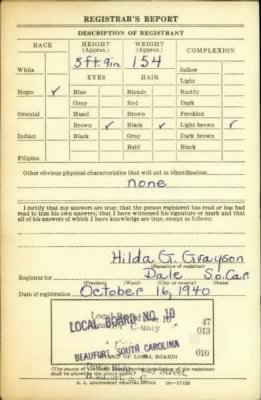 REGISTRAR'S REPORT
DESCRIPTION OF REGISTRANT
RACE HEIGHT (Approx.) WEIGHT (Approx.) COMPLEXION
5 ft. 9 in. 154
White Sallow
EYES HAIR Light
Negro ✓ Blue Blonde Ruddy
Gray Red Dark
Oriental Hazel Brown Freckled
Brown ✓ Black ✓ Light brown ✓
Indian Black Gray Dark brown
Bald Black
Filipino
Other obvious physical characteristics that will aid in identification
none
I certify that my answers are true; that the person registered has read or has had
read to him his own answers; that I have witnessed his signature or mark and that
all of his answers of which I have knowledge are true, except as follows:
Hilda G. Grayson
(Signature of registrar)
Registrar for Dale So. Car.
(Precinct) (Ward) (City or county) (State)
Date of registration October 16, 1940
LOCAL BOARD NO. 10
County
47
013
BEAUFORT, SOUTH CAROLINA
010
(STAMP OF LOCAL BOARD)
U. S. GOVERNMENT PRINTING OFFICE 16-17105